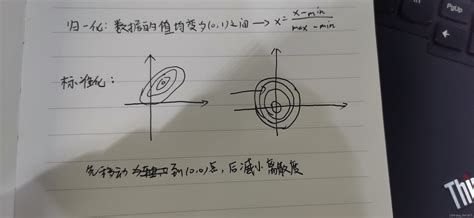 归一化：数据的值均变为(0,1)之间 → x = (x-min)/(max-min)
标准化：
先移动到(0,0)点，后减小离散度
Thi